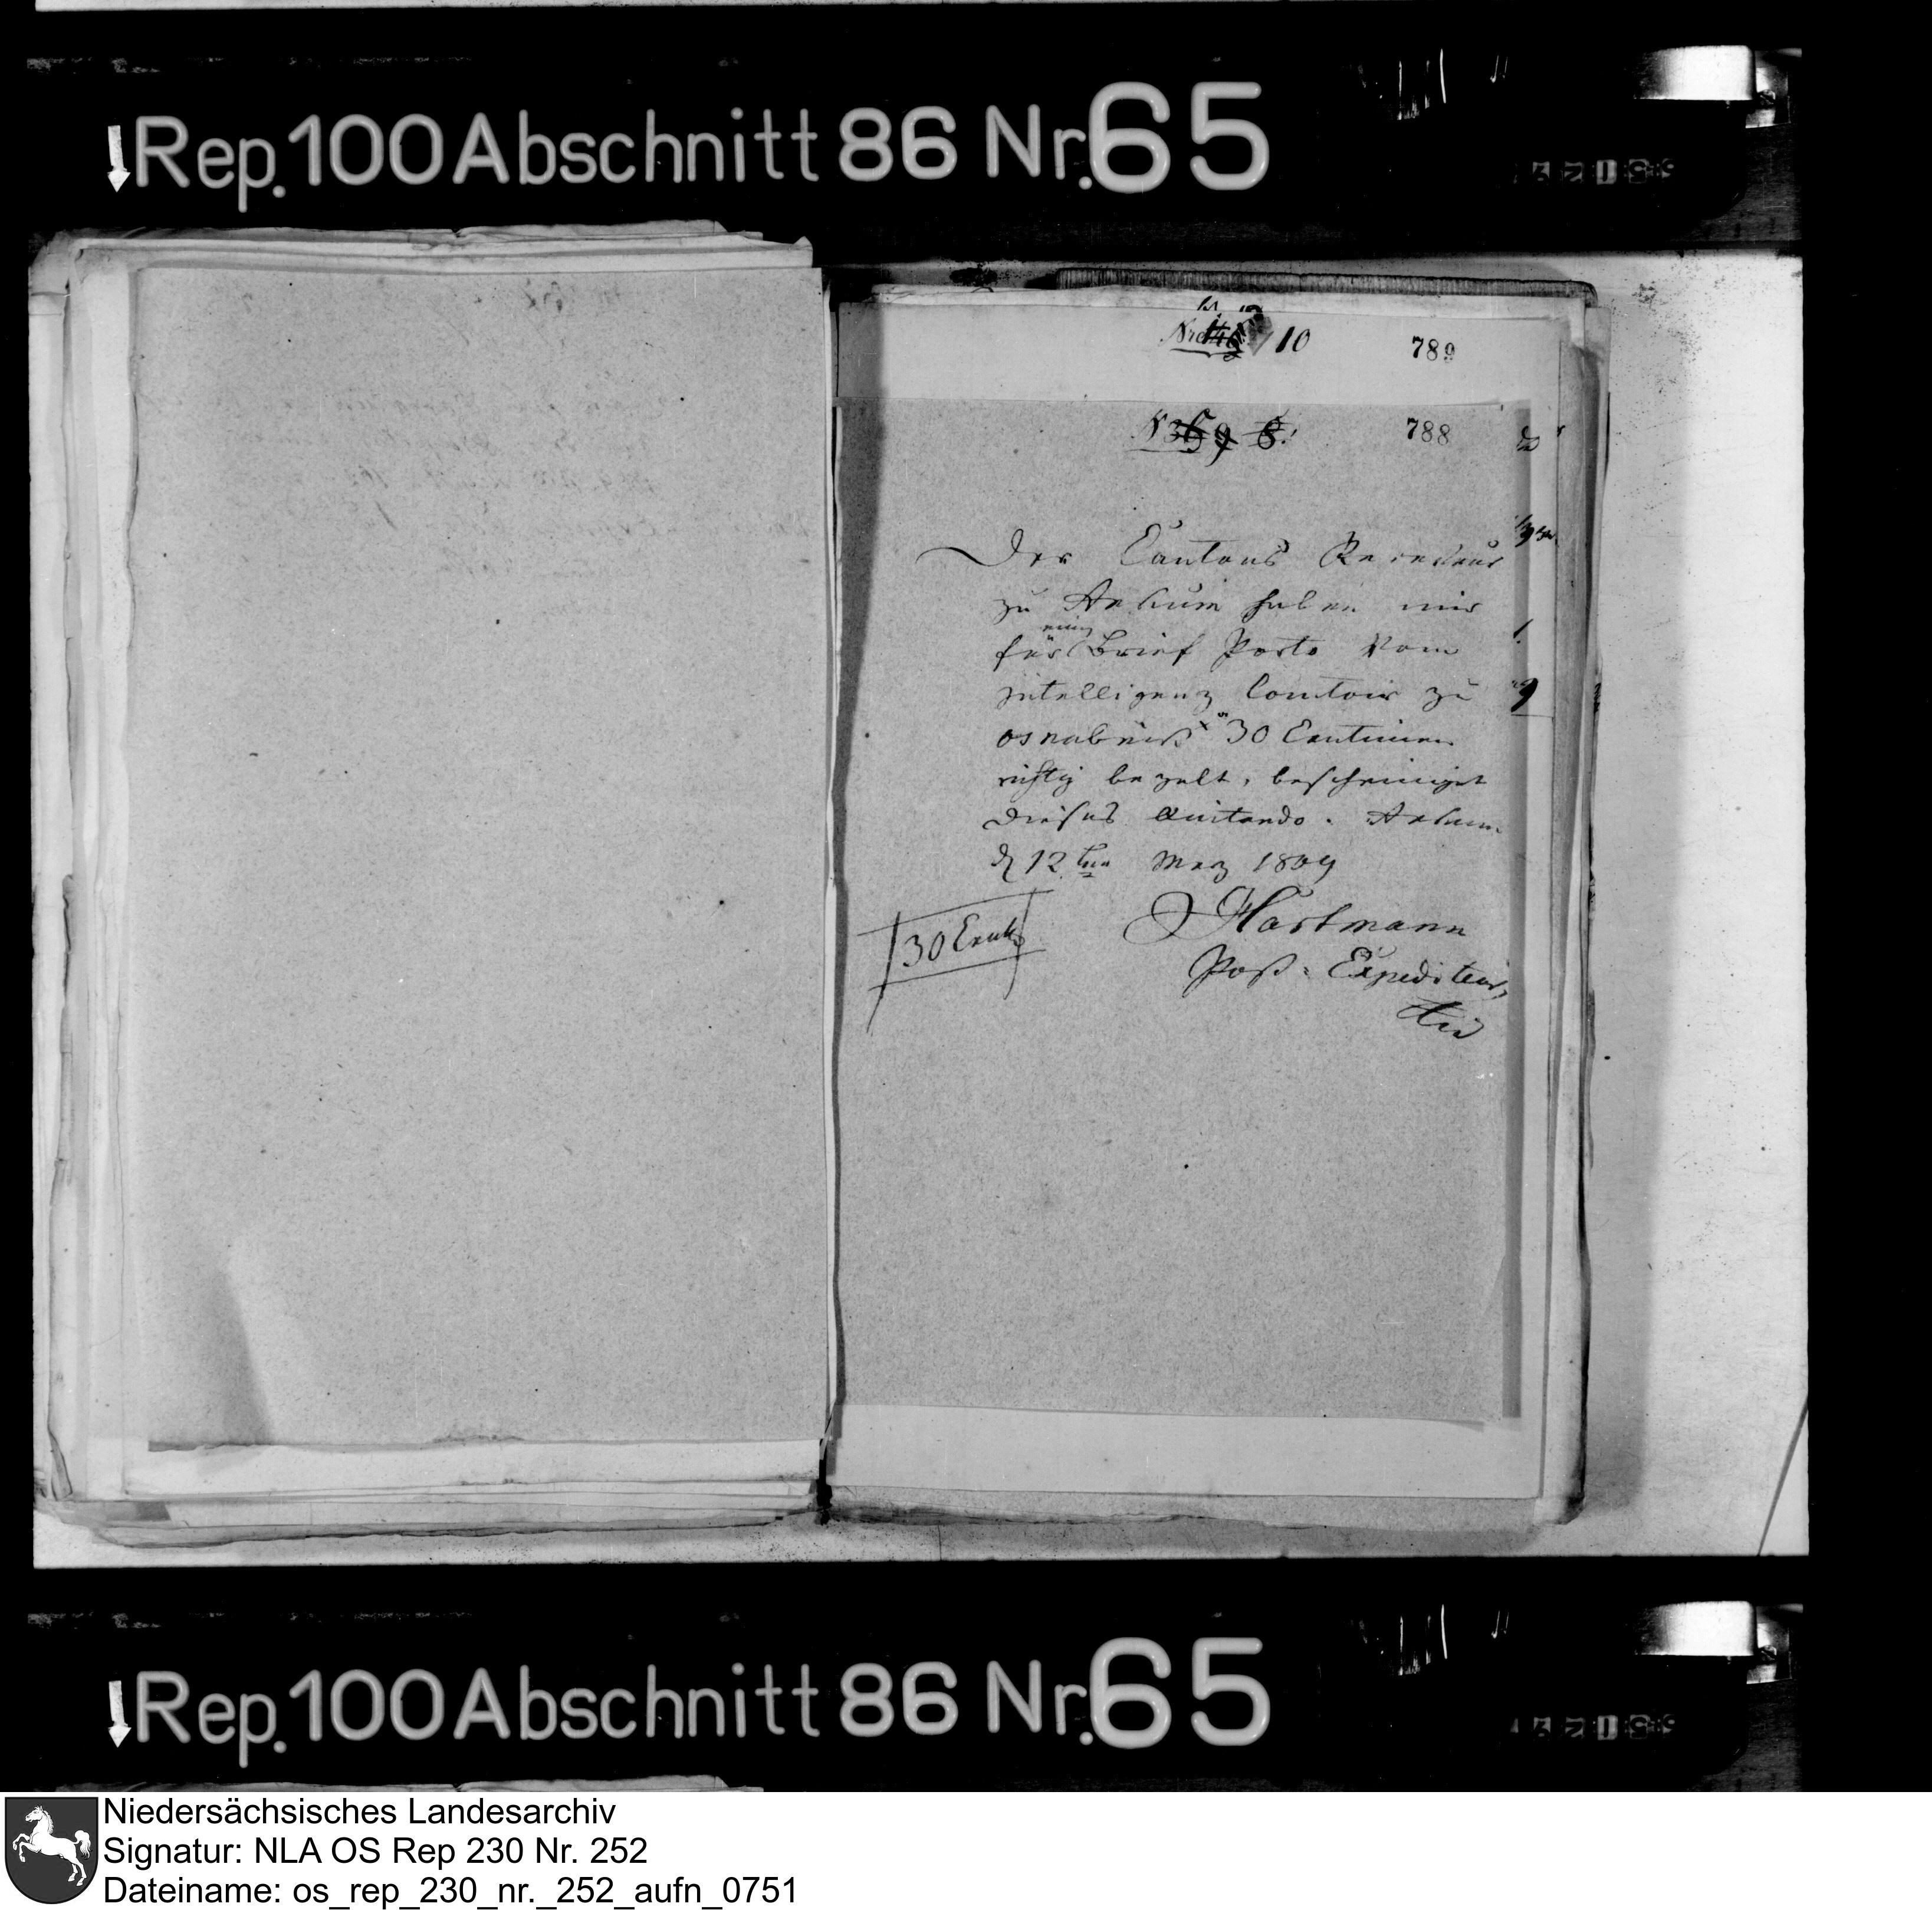 Rep. 100 Abschnitt 86 Nr. 65
10 789
788
Der Cantons Receveur
zu Ankum haben mir
für einen Brief Porto vom
intelligenz Comtoir zu
osnabrück 30 Centimen
richtig bezalt, bescheiniget
dieses quitando. Ankum
d 12ten Merz 1809
30 Cent
Hartmann
Post-Expediteur
Rep. 100 Abschnitt 86 Nr. 65
Niedersächsisches Landesarchiv
Signatur: NLA OS Rep 230 Nr. 252
Dateiname: os_rep_230_nr._252_aufn_0751